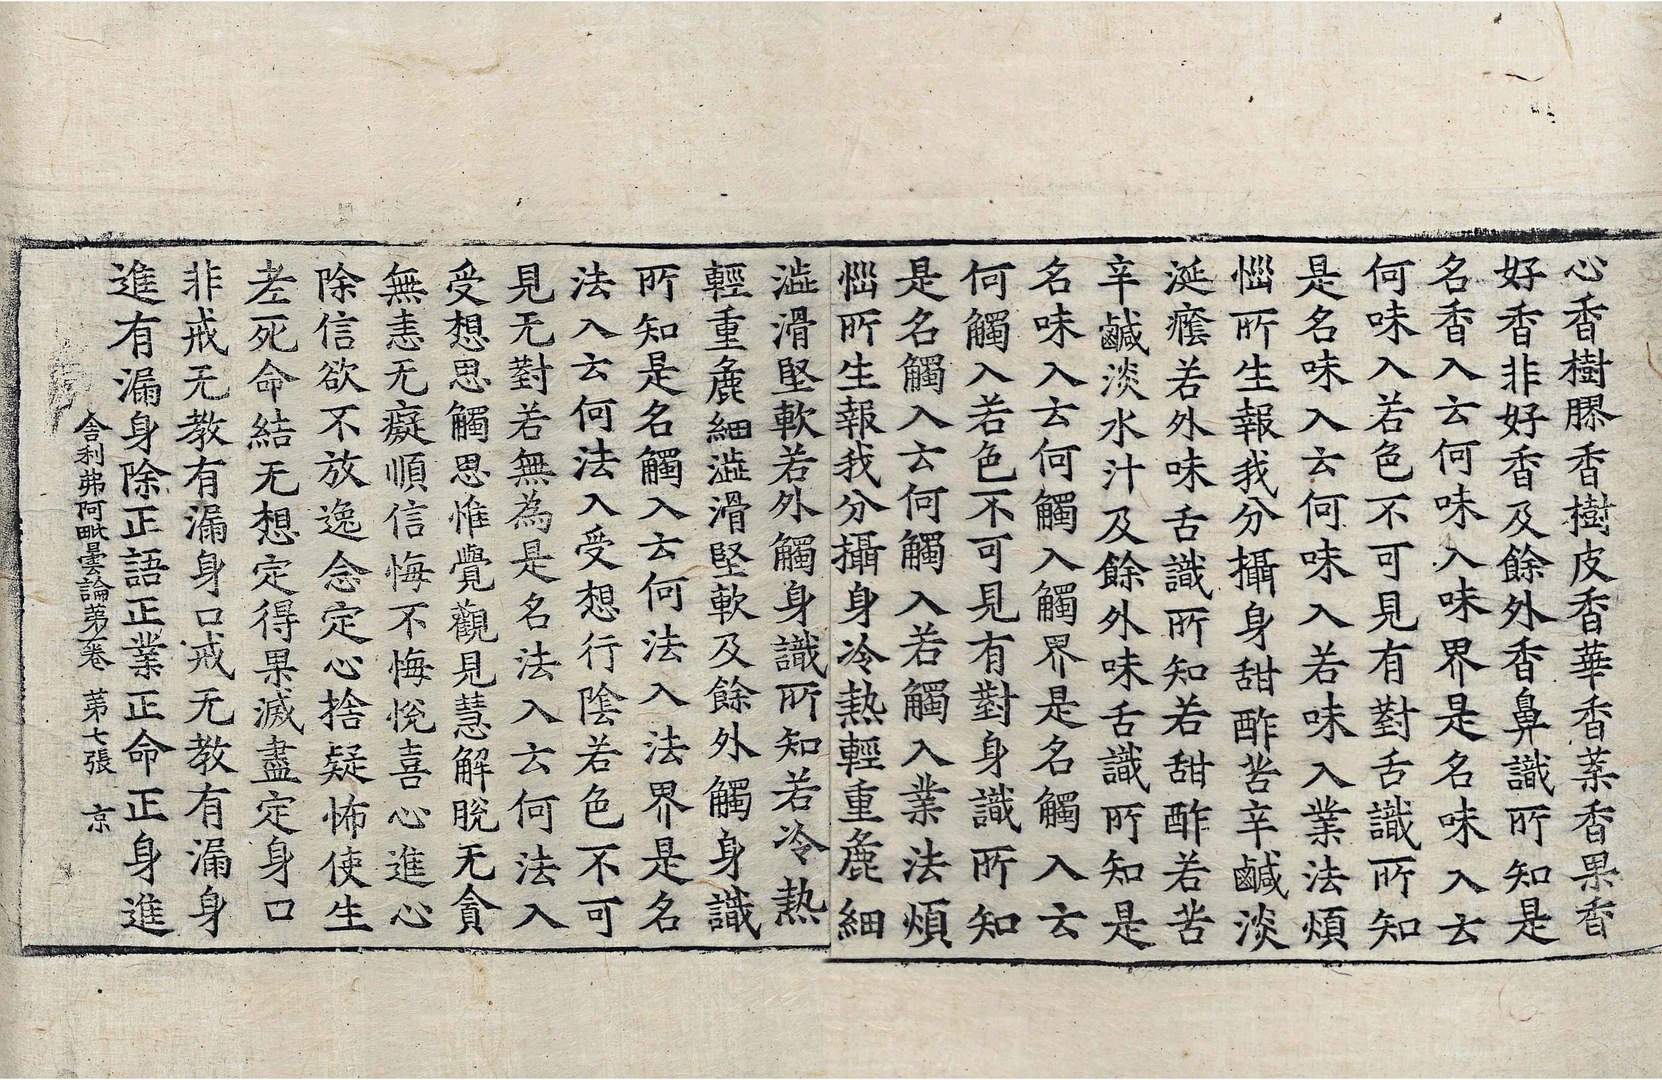 心香樹膠香樹皮香華香葉香果香
好香非好香及餘外香鼻識所知是
名香入云何味入味界是名味入云
何味入若色不可見有對舌識所知
是名味入云何味入若味入業法煩
惱所生報我分攝身甜酢苦辛鹹淡
涎癊若外味舌識所知若甜酢若苦
辛鹹淡水汁及餘外味舌識所知是
名味入云何觸入觸界是名觸入云
何觸入若色不可見有對身識所知
是名觸入云何觸入若觸入業法煩
惱所生報我分攝身冷熱輕重麁細
澁滑堅軟若外觸身識所知若冷熱
輕重麁細澁滑堅軟及餘外觸身識
所知是名觸入云何法入法界是名
法入云何法入受想行陰若色不可
見无對若無為是名法入云何法入
受想思觸思惟覺觀見慧解脫无貪
無恚无癡順信悔不悔悅喜心進心
除信欲不放逸念定心捨疑怖使生
老死命結无想定得果滅盡定身口
非戒无教有漏身口戒无教有漏身
進有漏身除正語正業正命正身進
舍利弗阿毗曇論第一卷 第七張 京